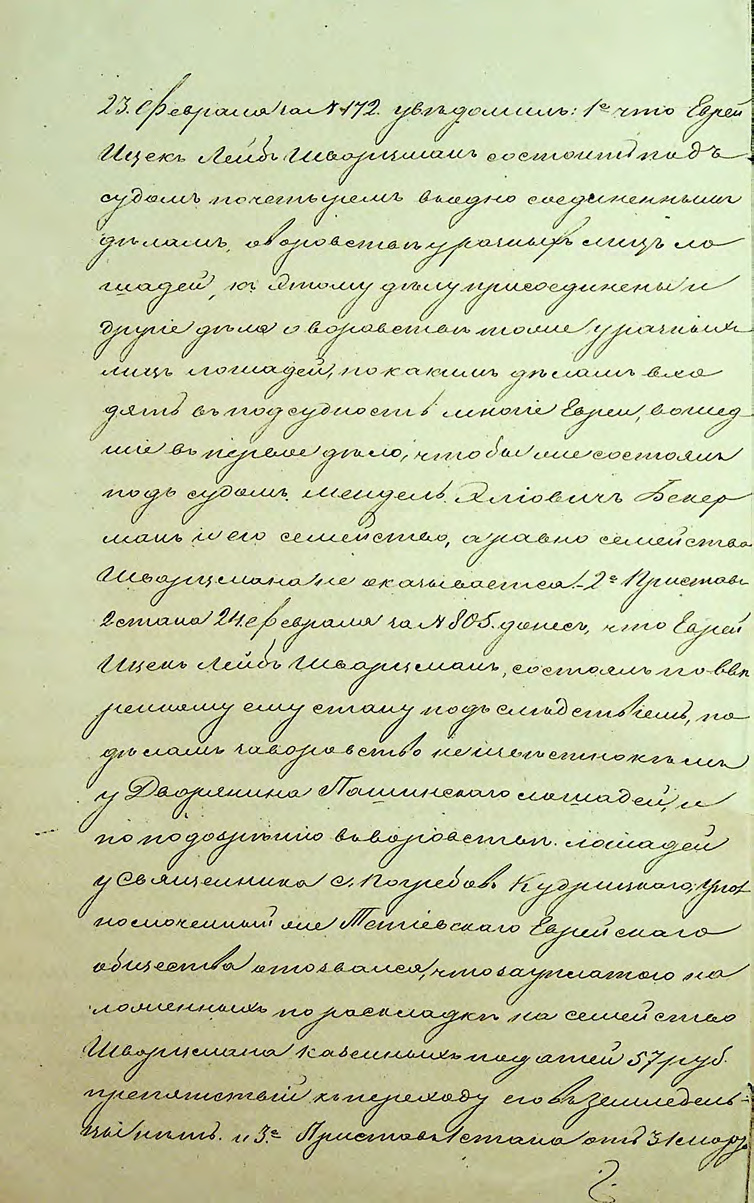 23. Февраля за №172. увѣдомилъ: 1е что Еврей
Ицекъ Лейбъ Шварцманъ состоитъ подъ
судомъ почетыремъ въодно соединеннымъ
дѣламъ, о воровствѣ уразныхъ лицъ ло
шадей, къ этому дѣлу присоединены и
другіе дѣла о воровствѣ тоже уразныхъ
лицъ лошадей, по какимъ дѣламъ вхо
дятъ въ подсудность многіе Евреи, вошед
шіе въ первое дѣло, чтобы же состоялъ
подъ судомъ Мендель Эліовичъ Бекер
манъ и его семейство, а равно семейство
Шварцмана не оказывается. 2е Приставъ
2 стана 24 Февраля за №805. донесъ, что Еврей
Ицекъ Лейбъ Шварцманъ, состоялъ по ввѣ
ренному ему стану подъ слѣдствіемъ, по
дѣламъ за воровство неизвѣстно кѣмъ
у Дворянина Пашинскаго лошадей, и
по подозрѣнію въ воровствѣ лошадей
у Священника с. Погребовъ Кудрицкаго; Упол
номоченный же Тетіевскаго Еврейскаго
общества отозвался, что за уплатою на
ложенныхъ по раскладкѣ на семейство
Шварцмана казенныхъ податей 57 руб.
препятствій къ переходу его въ земледѣль-
цы нѣтъ. и 3е Приставъ 1 стана отъ 31 мар